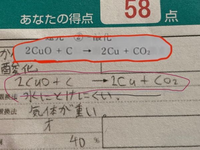 あなたの得点 58 点
2CuO + C → 2Cu + CO₂
酸化
2CuO + C → 2Cu + CO₂
水にとけにくい。
気体が重い。
40